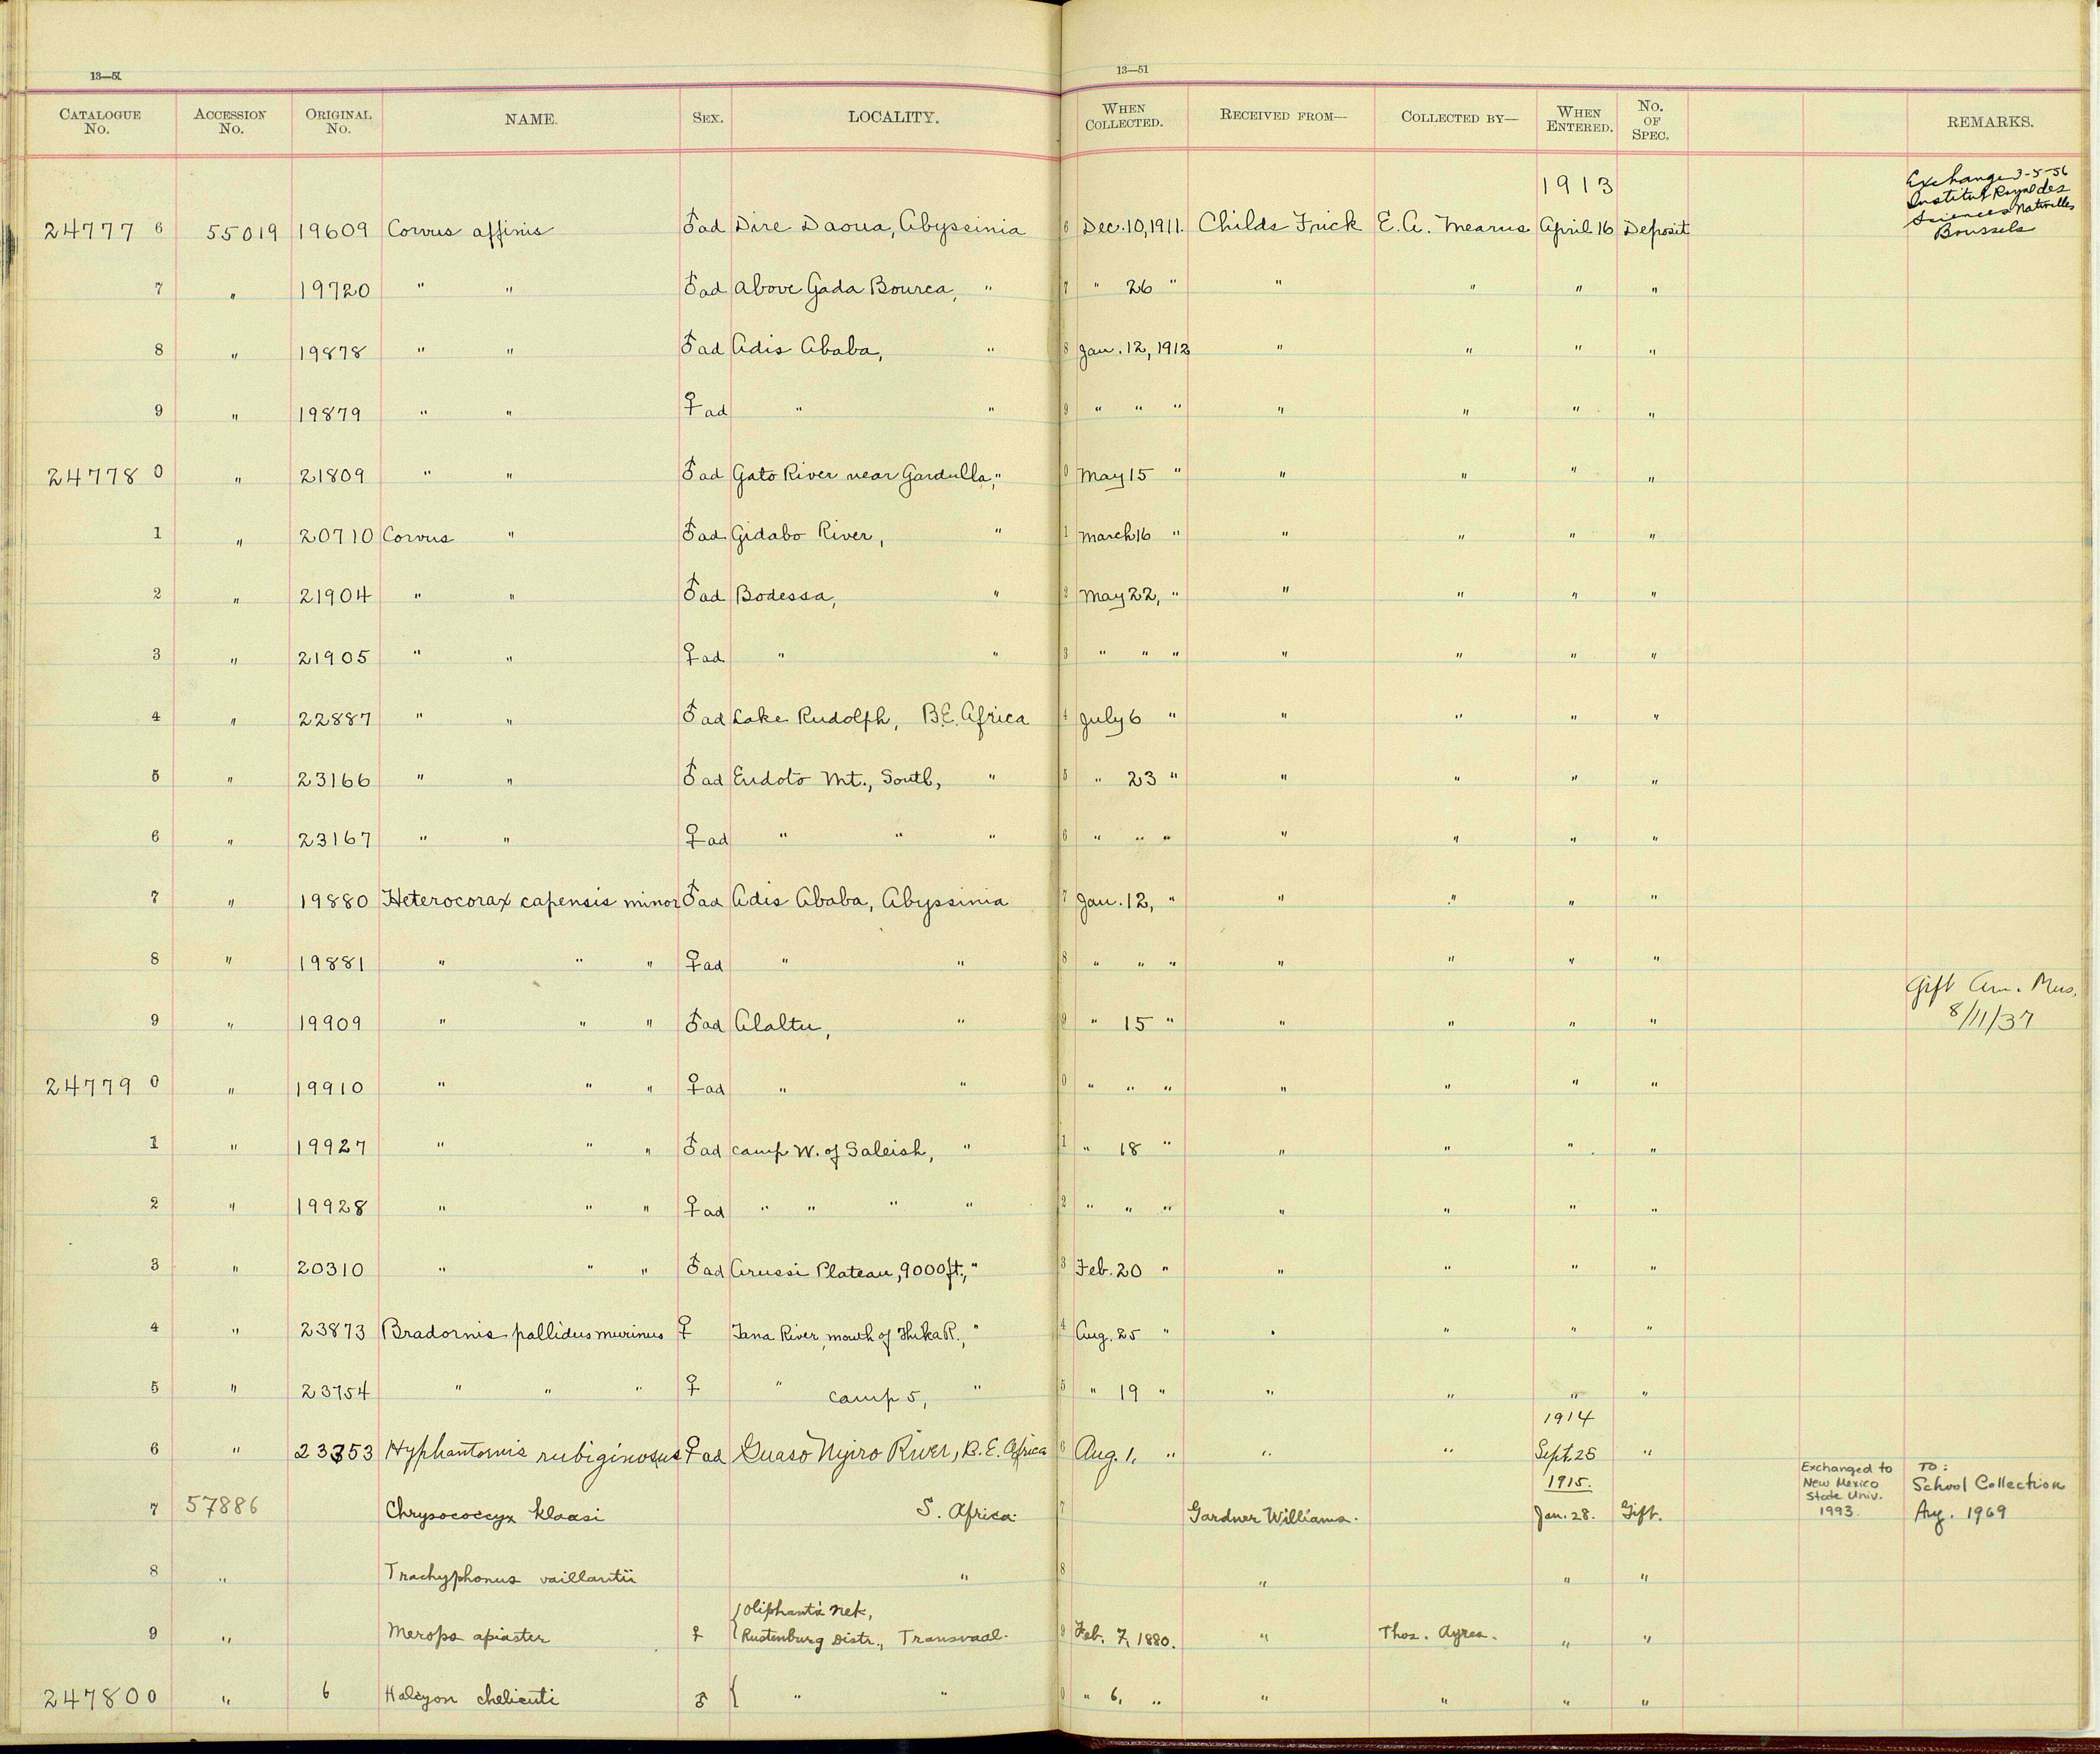 13—51
13—51
CATALOGUE No. ACCESSION No. ORIGINAL No. NAME. SEX. LOCALITY. WHEN COLLECTED. RECEIVED FROM— COLLECTED BY— WHEN ENTERED. No. OF SPEC. REMARKS.
1913
Exchange 3-5-56
Institut Royal des
Sciences Naturelles
Brussels
247776 55019 19609 Corvus affinis ♂ad Dire Daoua, Abyssinia 6 Dec. 10, 1911. Childs Frick E. A. Mearns April 16 Deposit
7 " 19720 " " ♂ad Above Gada Bourca, " 7 " 26 " " " " "
8 " 19878 " " ♂ad Adis Ababa, " 8 Jan. 12, 1912 " " " "
9 " 19879 " " ♀ad " " 9 " " " " " " "
247780 " 21809 " " ♂ad Gato River near Gardulla, " 0 May 15 " " " " "
1 " 20710 Corvus " ♂ad Gidabo River, " 1 March 16 " " " " "
2 " 21904 " " ♂ad Bodessa, " 2 May 22, " " " " "
3 " 21905 " " ♀ad " " 3 " " " " " " "
4 " 22887 " " ♂ad Lake Rudolph, B.E. Africa 4 July 6 " " " " "
5 " 23166 " " ♂ad Endoto Mt., South, " 5 " 23 " " " " "
6 " 23167 " " ♀ad " " " 6 " " " " " " "
7 " 19880 Heterocorax capensis minor ♂ad Adis Ababa, Abyssinia 7 Jan. 12, " " " " "
8 " 19881 " " " ♀ad " " 8 " " " " " " "
Gift Am. Mus.
8/11/37
9 " 19909 " " " ♂ad Alaltu, " 9 " 15 " " " " "
247790 " 19910 " " " ♀ad " " 0 " " " " " " "
1 " 19927 " " " ♂ad camp W. of Saleish, " 1 " 18 " " " " "
2 " 19928 " " " ♀ad " " " " 2 " " " " " " "
3 " 20310 " " " ♂ad Arussi Plateau, 9000ft., " 3 Feb. 20 " " " " "
4 " 23873 Bradornis pallidus murinus ♀ Tana River, mouth of Thika R., " 4 Aug. 25 " " " " "
5 " 23754 " " " ♀ " camp 5, " 5 " 19 " " " " "
1914
6 " 23353 Hyphantornis rubiginosus ♀ad Guaso Nyiro River, B.E. Africa 6 Aug. 1, " " " Sept. 25 "
1915.
Exchanged to
New Mexico
State Univ.
1993.
To:
School Collection
Aug. 1969
7 57886 Chrysococcyx klaasi S. Africa. 7 Gardner Williams. Jan. 28. Gift.
8 " Trachyphonus vaillantii " 8 " " "
Oliphant's Nek,
9 " Merops apiaster ♀ Rustenburg Distr., Transvaal. 9 Feb. 7, 1880. " Thos. Ayres. " "
247800 " 6 Halcyon chelicuti ♂ " " 0 " 6, " " " " "